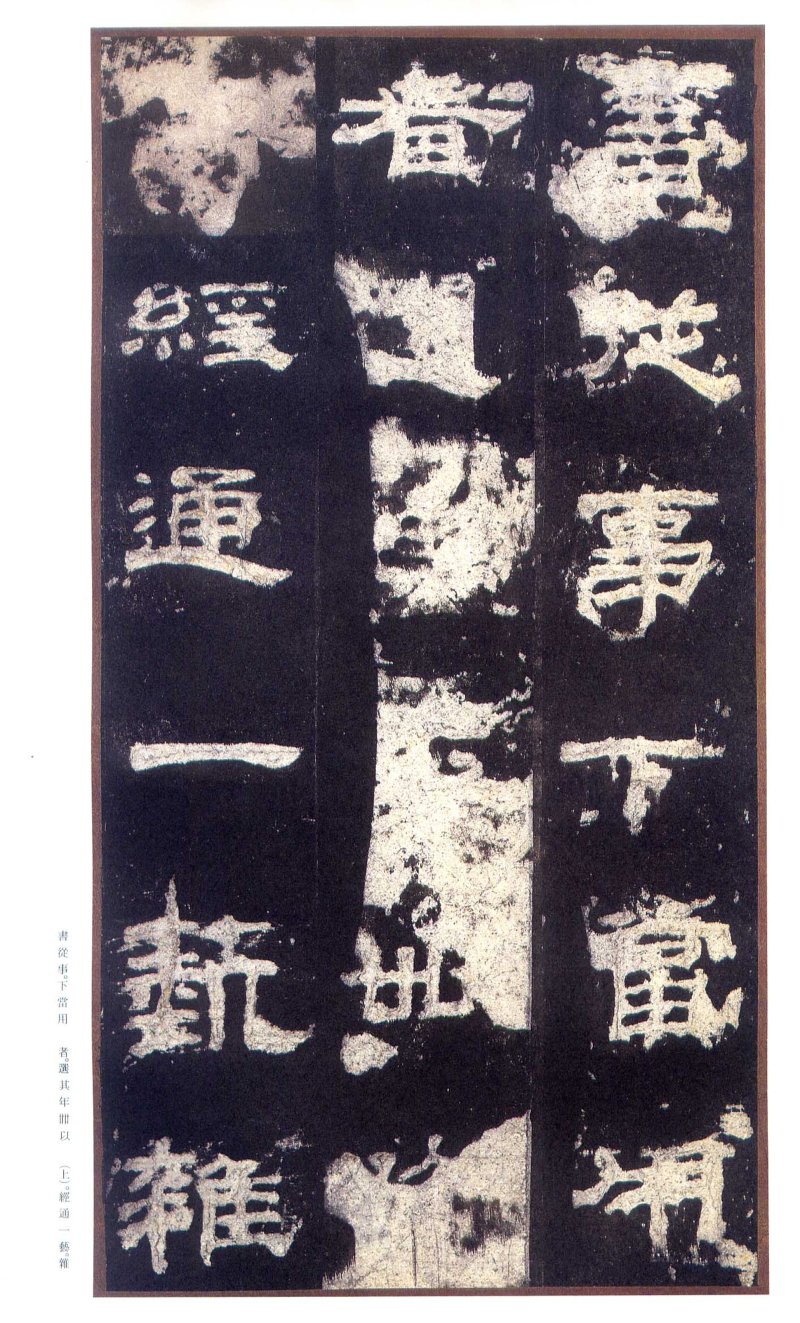 書從事下當用
者卌
經通一藝雜
書從事。下當用　者。選其年卌以　（上）。經通一藝。雜